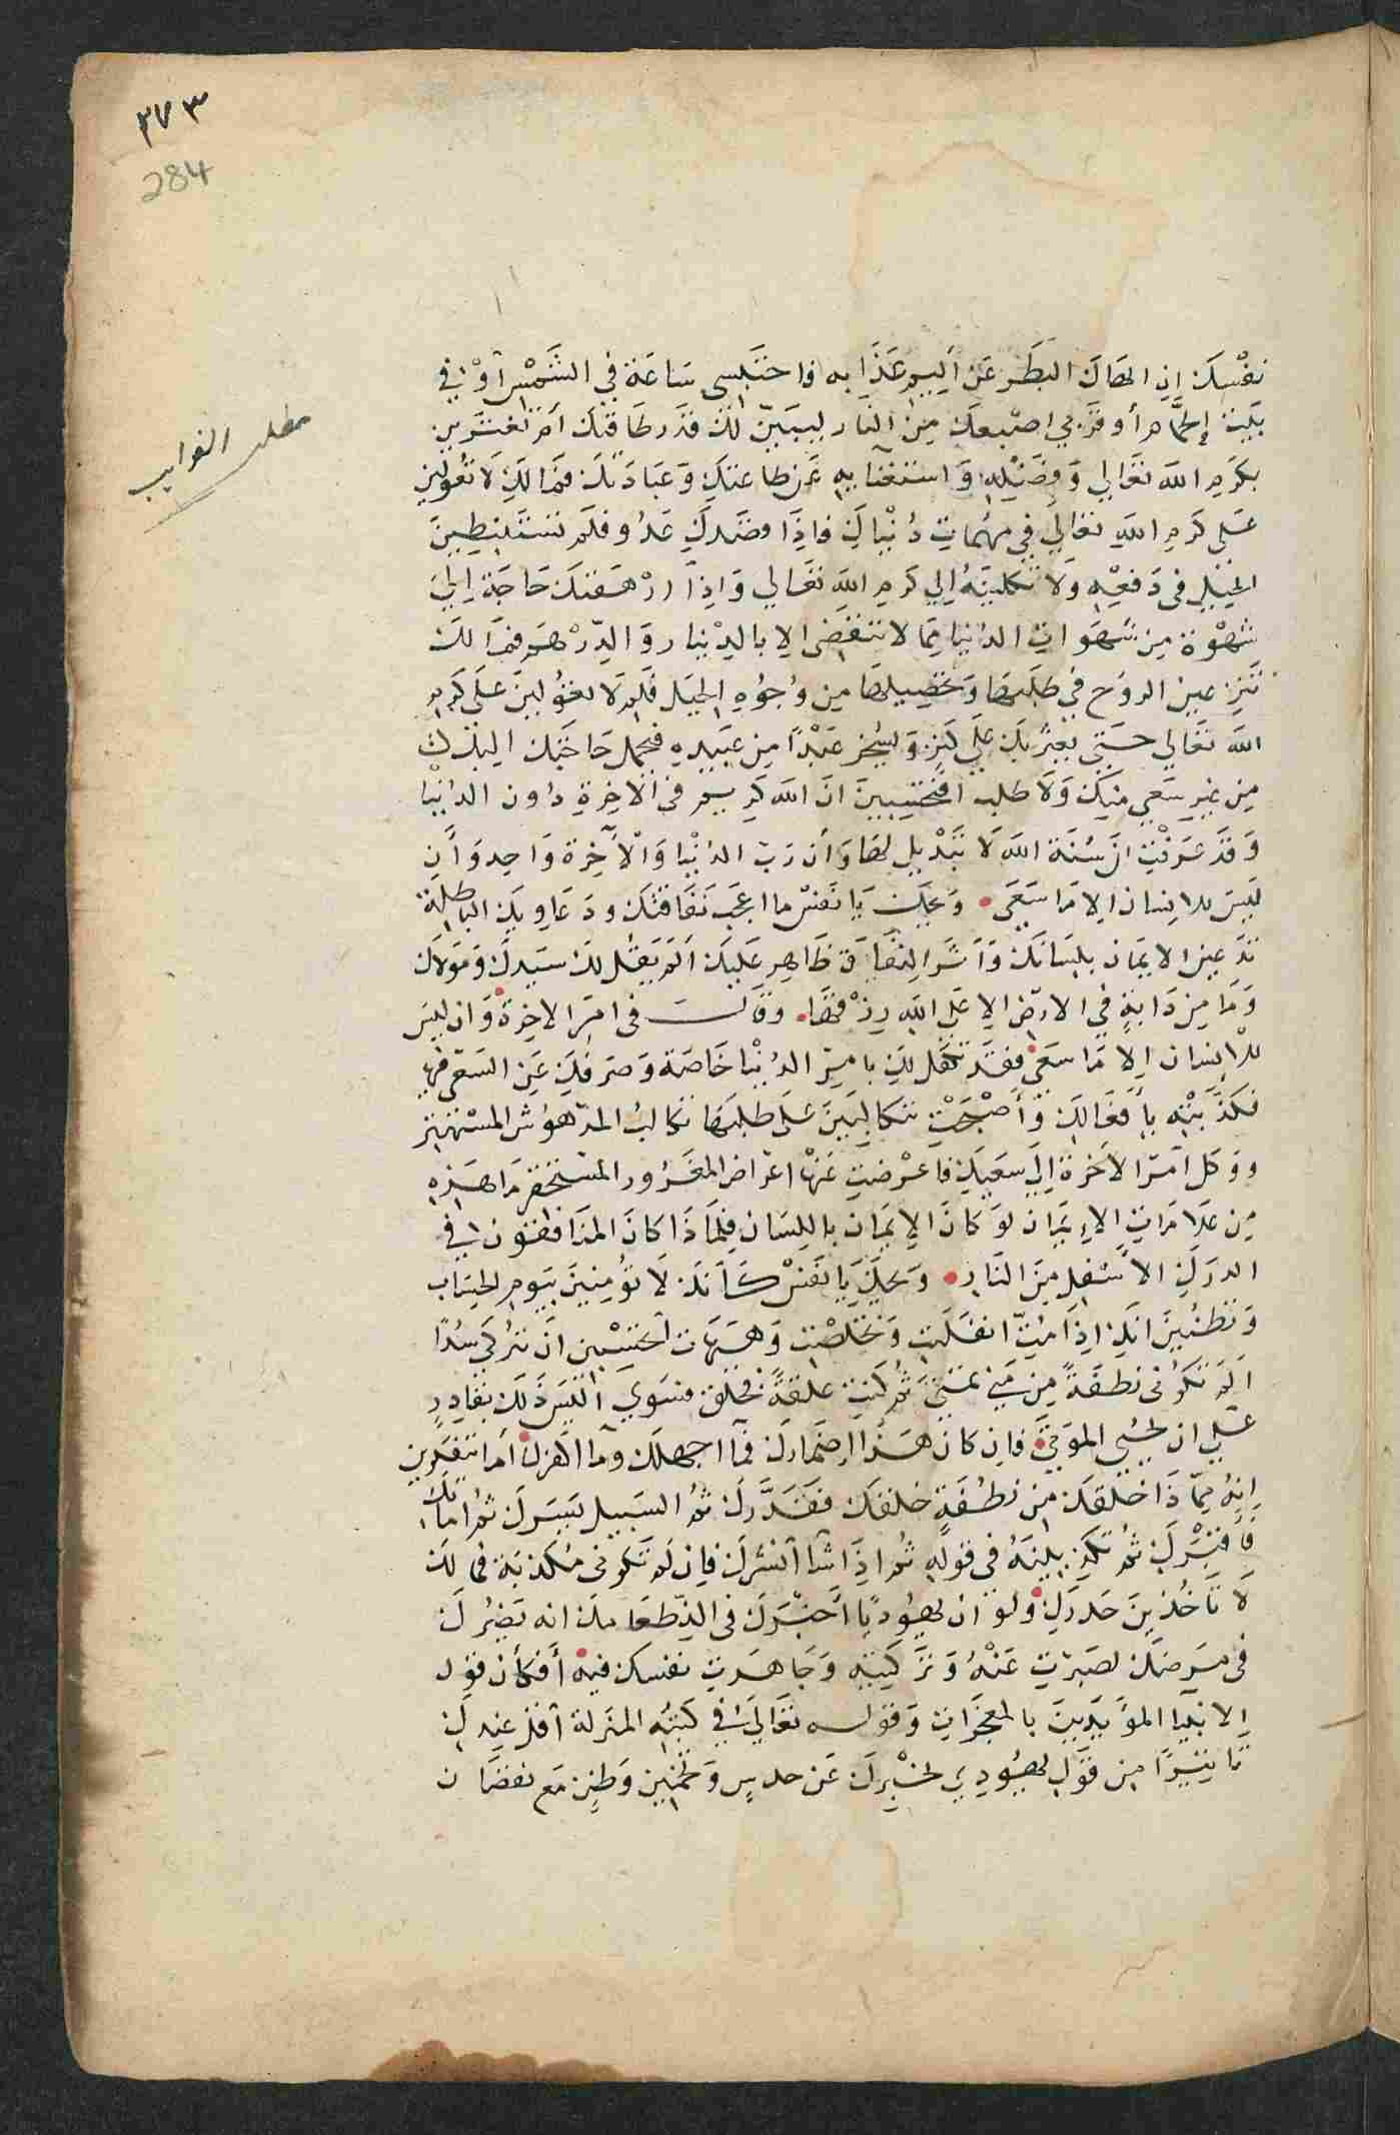 ٣٧٣
284
مطلب الغرايب
نفْسكَ ان الهَاكَ البَطَر عَن أليم عَذَابه فاحتَبسى سَاعَة في الشَمْسِ أوْ في
بَيت الحَّمام أو قرّبي اصْبعك مِنَ النار ليبَيّن لكَ قدَر طَاقتك أم تغترين
بكَرم الله تعَالي وَفضْلِه وَاستغنَايِه عَن طاعتكِ وَعبَادَتك فمَالكِ لَا تعُولين
عَلى كرم اللهِ تعَالي في مهُمات دُنْياكِ فاذَا قصَدكِ عَدُو فلَم تستَنبطِينَ
الحيَل في دَفعِهِ وَلا تكلينَهُ الي كرم الله تعَالي وَاذَا ارْهَقتكَ حَاجَة اليَ
شهْوة مِن شهَوات الدنيا مِمّا لا تنقضى الا بالدينار وَالدّرْهَم فمَالك
تنزعين الروَح في طلَبهَا وَتحَصِيلهَا من وُجُوهِ الحيَل فلمَ لَا تعُولينَ عَلى كَرم
الله تعَالي حَتي يعثرَ بكِ عَلي كنز وَيسُخر عَبْدًا من عَبيدِه فيحمل حَاجَتك اليك
مِن غير سَعي منكِ وَلَا طلب افتحْسَبينَ انَ الله كَريم في الاخِرةِ دوُن الدنيا
وَقَد عَرَفْتِ انَ سُنَة الله لَا تبَديل لهَا وَأن رَبّ الدنْيا وَالآخِرة وَاحِد وَأن
لَيسَ للانسَان الا مَا سَعَى وَيحك يَا نفَسْ ما اعجَب نفَاقكِ ودَعاويكِ الباطِلة
تدَّعين الايمَان بلسَانك وَأثَر النفَاق ظاهِر عَليك ألم يقُل لك سَيدكِ وَمَولاك
وَمَا مِن دَابةٍ في الارَض الا عَلى الله رِزْقهَا وقَالَ في امَر الاخِرة وَان ليسَ
للانسَان الا مَا سَعَى فقَد تكفل لكِ بامَرِ الدُنْيا خَاصَة وَصَرفكِ عَن السَعي فيها
فكَذّبتْه بأفعَالكِ وَأصْبحْتِ تتكالبَينَ عَلى طلبَهَا تكالب المدهُوش المستهتر
ووَكل امَر الاخرة إلي سَعيك فاعرْضتِ عَنها اعرَاض المغرُور المستحقر مَا هَذِه
مِن عَلامَات الإيمَان لوَ كانَ الإيمَان باللسَان فلمَاذَا كانَ المنَافقون في
الدركِ الأسْفل مِنَ النَار وَيحكِ يَا نفَسْ كأنك لَا تؤمِنينَ بيَوم الحسَاب
وَتظنُينَ انكِ اذَا متُّ انفلَتِ وَتخلصْت وَهَيهَات أتحسَبين ان تتركي سُدًا
ألَم تكوُني نطَفةً مِن مَني يمنى ثُم كنتِ عَلقَةً فخلق فسَوي الَيسَ ذَلك بقَادِرٍ
عَلي ان يحيي الموتيَ فان كان هَذا اضمَارك فمَا اجهلك ومَا اكفرك أما تتفكرين
إنهُ ممّاذَا خلقك مِن نطفَةٍ خلقك فقَدَّرك ثُم السَبيل يَسَرك ثُم اماتك
فأقبَرك ثُم تكذبينَهُ في قولِهِ ثُم اذَا شَا أنشَرَك فان لَم تكوني مُكذبَة فمالك
لَا تأخُذينَ حَذركِ ولو ان يهُودِيًا أخْبَرك في الذ طعَامِك انه يَضرُك
في مَرضك لصَبرتِ عَنْهُ وَترَكتيهِ وَجَاهَدتِ نفسك فيه أفكأن قول
الانبيا المؤيَدينَ بالمعجزَات وَقوله تعَالي في كتبه المنزلة أقل عِندك
تَاثيرًا من قَول يهُودِي يخْبركَ عَن حدسٍ وَتخمِين وَظنٍ مَع نقصَان